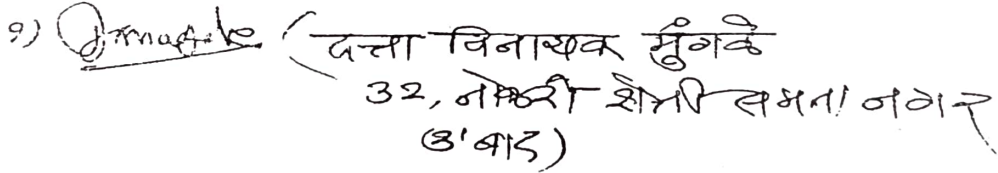 १) (दत्ता विनायक मुंगळे
32, नोकरी शेती समता नगर
उ'बाद)